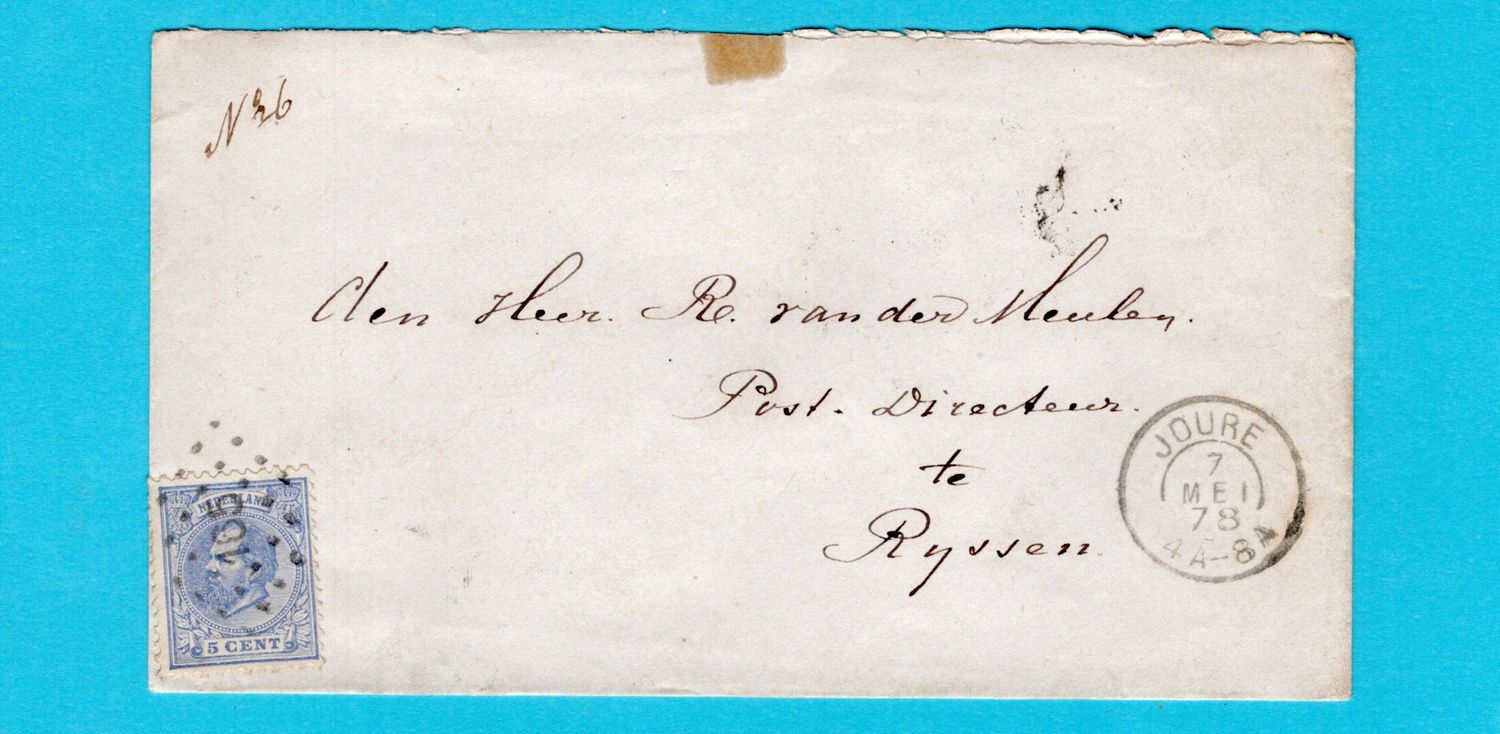 No 26
den Heer. R. van der Meulen.
Post. Directeur.
te
Ryssen.
JOURE
7
MEI
78
4A-8A
NEDERLAND
5 CENT